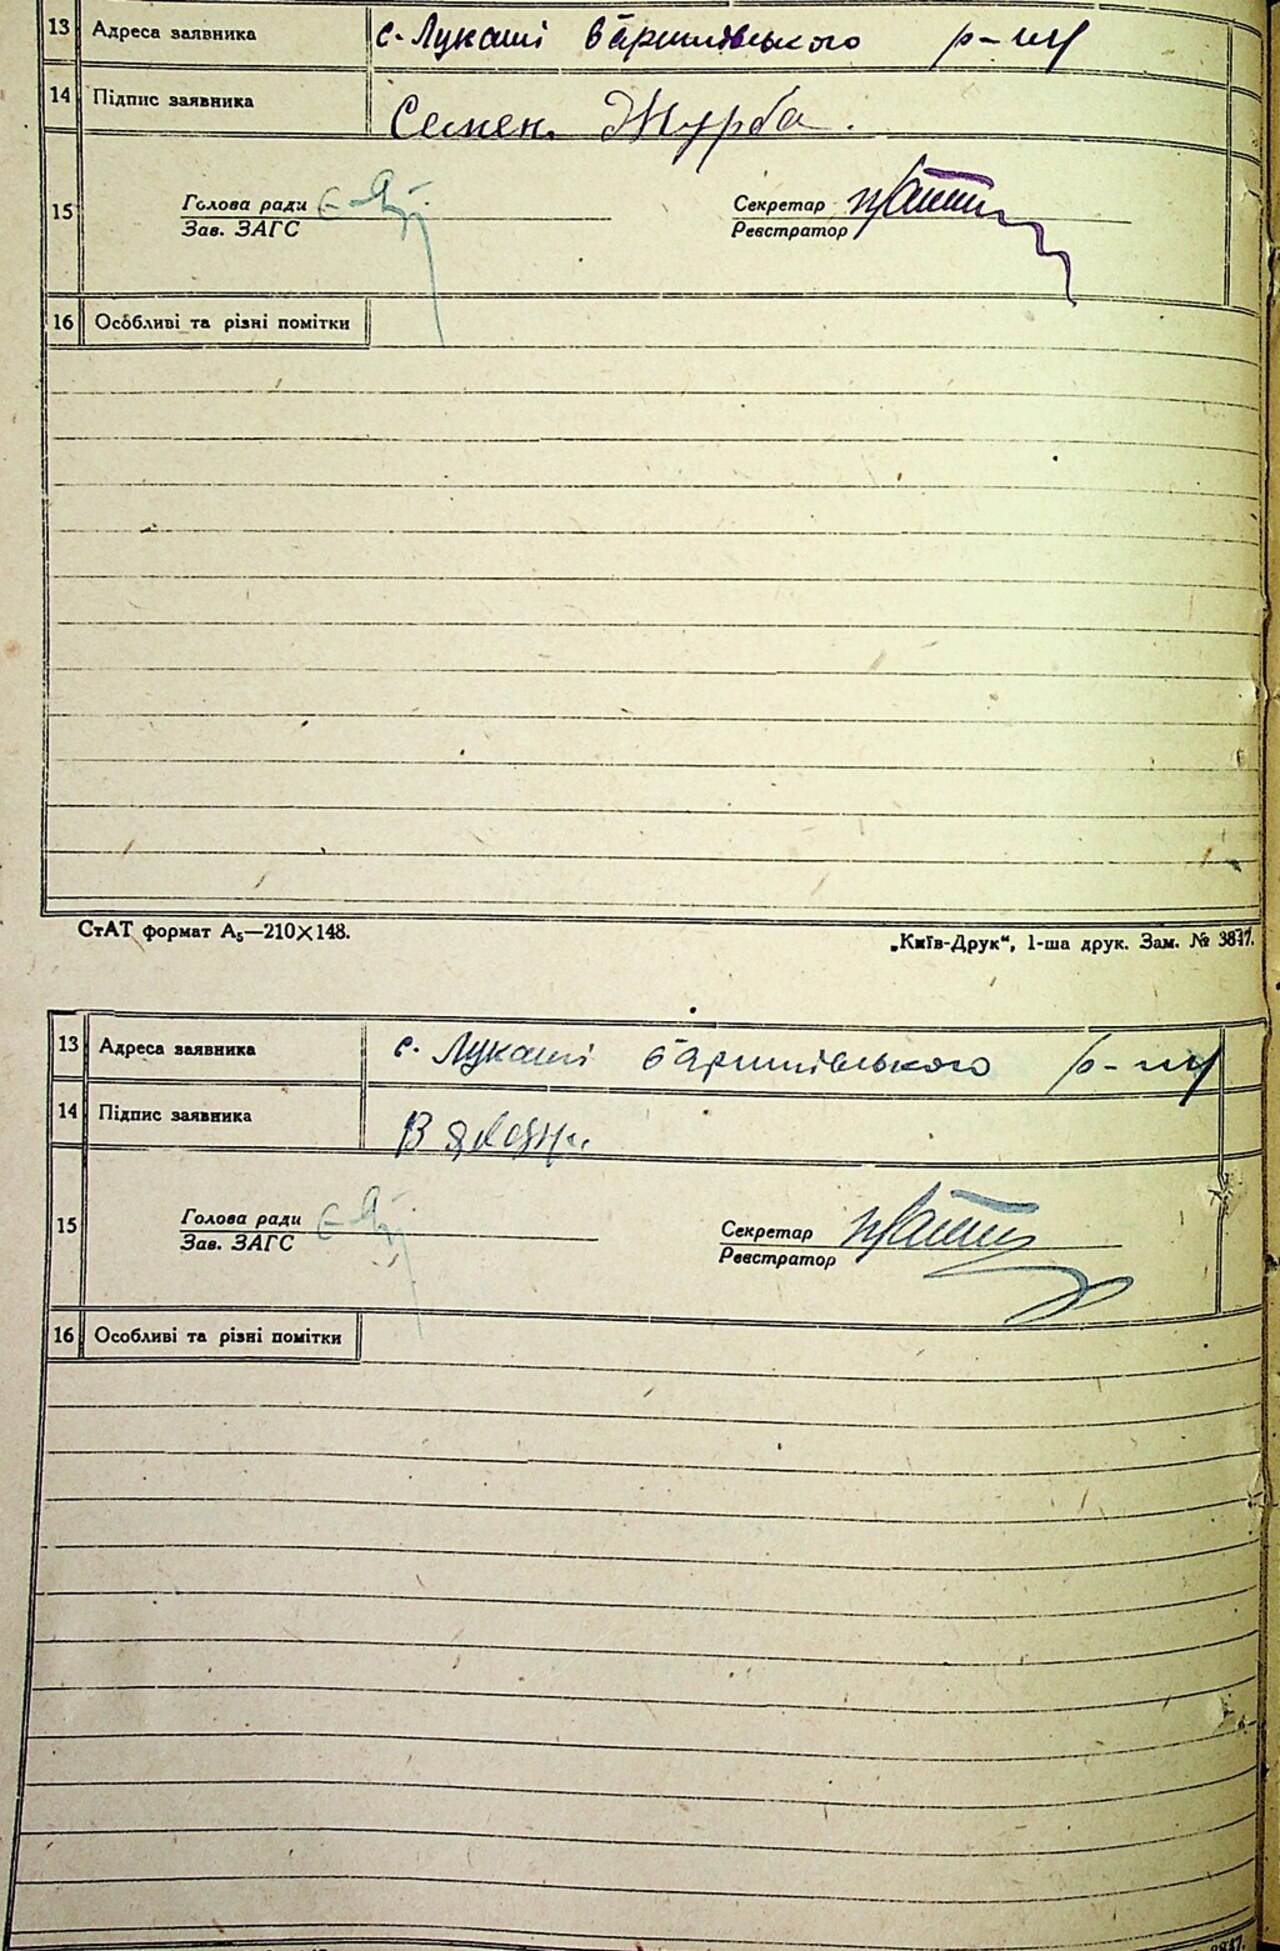 13 Адреса заявника с. Лукаші баришівського р-ну
14 Підпис заявника Семен Журба.
15 Голова ради Секретар
Зав. ЗАГС Реєстратор
16 Особливі та різні помітки
СтАТ формат А5—210×148. „Київ-Друк“, 1-ша друк. Зам. № 3817.
13 Адреса заявника с. Лукаші баришівського р-ну
14 Підпис заявника В
15 Голова ради Секретар
Зав. ЗАГС Реєстратор
16 Особливі та різні помітки